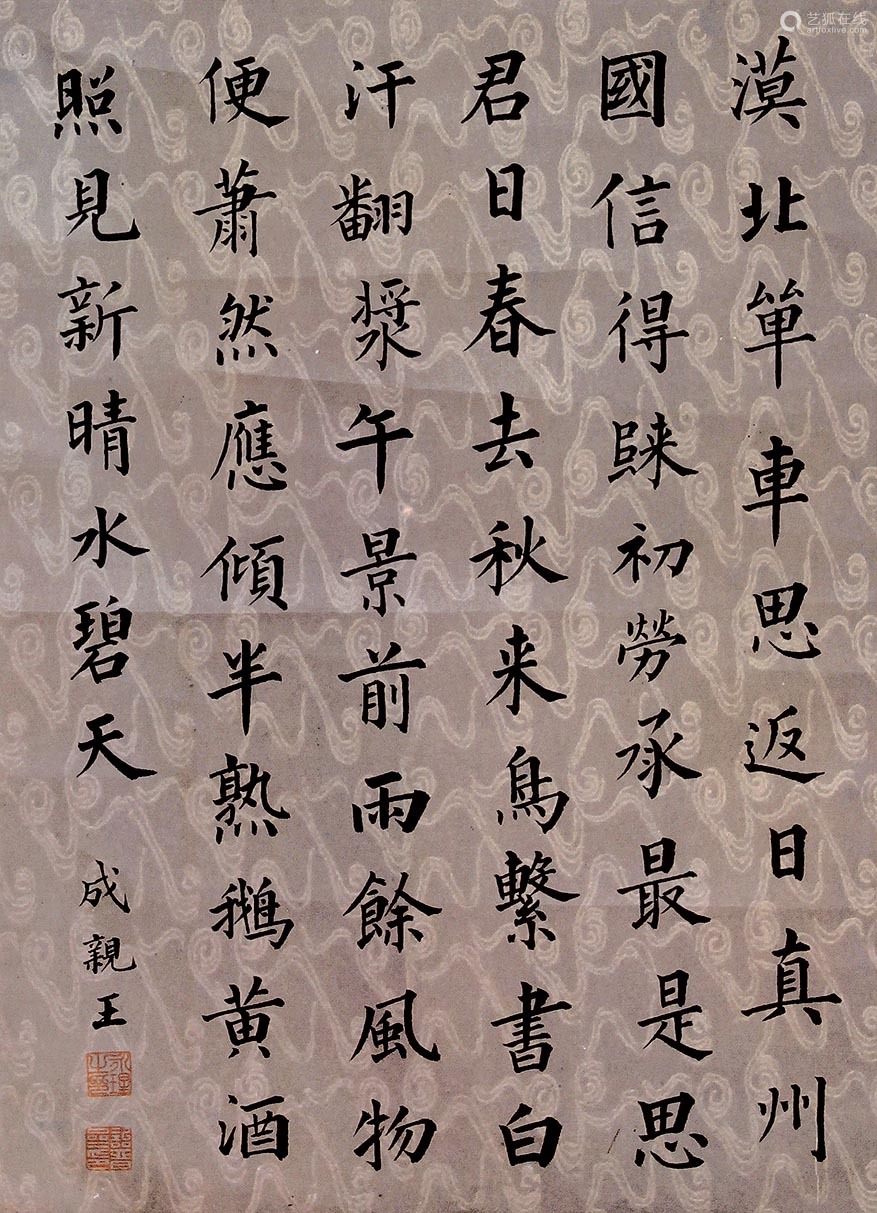 漠北單車思返日真州
國信得歸初勞承最是思
君日春去秋来鳥繫書白
汗翻漿午景前雨餘風物
便蕭然應傾半熟鵝黄酒
照見新晴水碧天
成親王
艺狐在线
artfoxlive.com